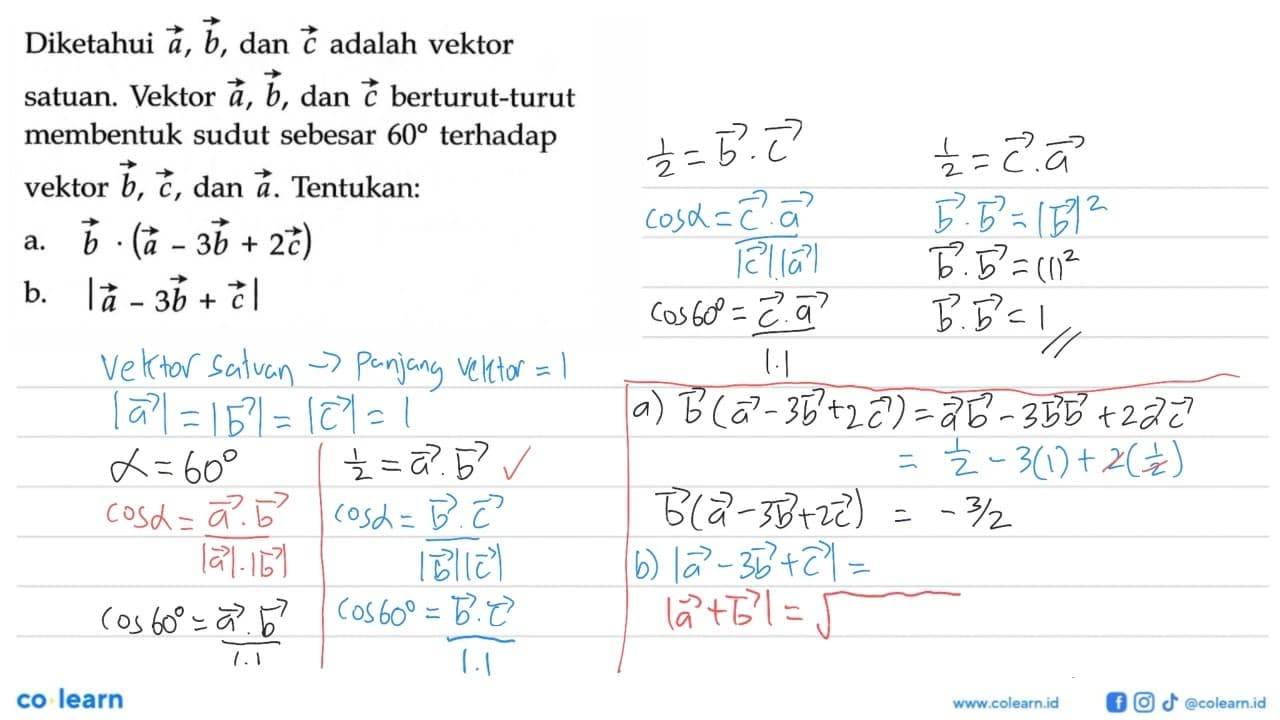 Diketahui a⃗, b⃗, dan c⃗ adalah vektor
satuan. Vektor a⃗, b⃗, dan c⃗ berturut-turut
membentuk sudut sebesar 60° terhadap
vektor b⃗, c⃗, dan a⃗. Tentukan:
a. b⃗ · (a⃗ – 3b⃗ + 2c⃗)
b. |a⃗ – 3b⃗ + c⃗|
Vektor satuan → panjang vektor = 1
|a⃗| = |b⃗| = |c⃗| = 1
α = 60°
cosα = a⃗.b⃗ / |a⃗|.|b⃗|
cos60° = a⃗.b⃗ / 1.1
1/2 = a⃗.b⃗ ✓
cosα = b⃗.c⃗ / |b⃗||c⃗|
cos60° = b⃗.c⃗ / 1.1
1/2 = b⃗.c⃗
cosα = c⃗.a⃗ / |c⃗||a⃗|
cos60° = c⃗.a⃗ / 1.1
1/2 = c⃗.a⃗
b⃗.b⃗ = |b⃗|²
b⃗.b⃗ = (1)²
b⃗.b⃗ = 1 //
a) b⃗(a⃗ - 3b⃗ + 2c⃗) = a⃗b⃗ - 3b⃗b⃗ + 2a⃗c⃗
= 1/2 - 3(1) + 2(1/2)
b⃗(a⃗ - 3b⃗ + 2c⃗) = - 3/2
b) |a⃗ - 3b⃗ + c⃗| =
|a⃗ + b⃗| = √
co·learn
www.colearn.id
@colearn.id